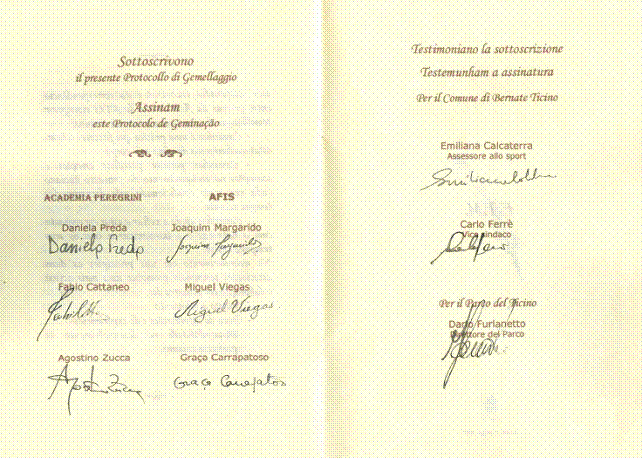 Sottoscrivono
il presente Protocollo di Gemellaggio
Assinam
este Protocolo de Geminação
ACADEMIA PEREGRINI
AFIS
Daniela Preda
Joaquim Margarido
Daniela Preda
Joaquim Margarido
Fabio Cattaneo
Miguel Viegas
Miguel Viegas
Agostino Zucca
Graço Carrapatoso
Agostino Zucca
Graço Carrapatoso
Testimoniano la sottoscrizione
Testemunham a assinatura
Per il Comune di Bernate Ticino
Emiliana Calcaterra
Assessore allo sport
Carlo Ferrè
Vice sindaco
Per il Parco del Ticino
Dario Furlanetto
Direttore del Parco